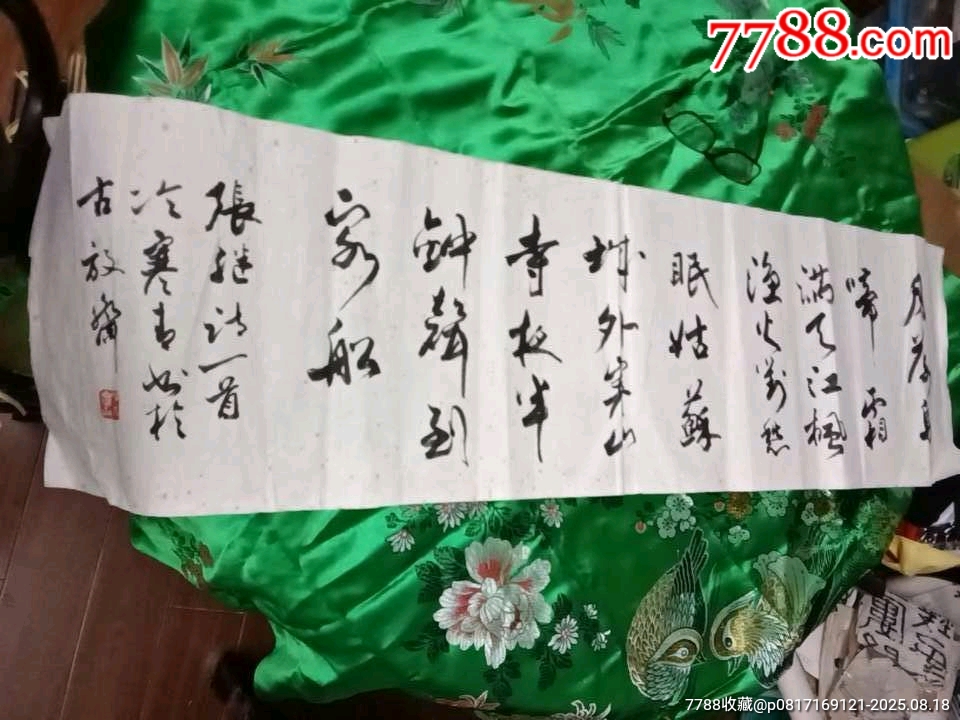 7788.com
月落烏
啼霜
滿天江楓
漁火對愁
眠姑蘇
城外寒山
寺夜半
鐘聲到
客船
張繼詩一首
冷寒青书於
古放齋
7788收藏@p0817169121-2025.08.18